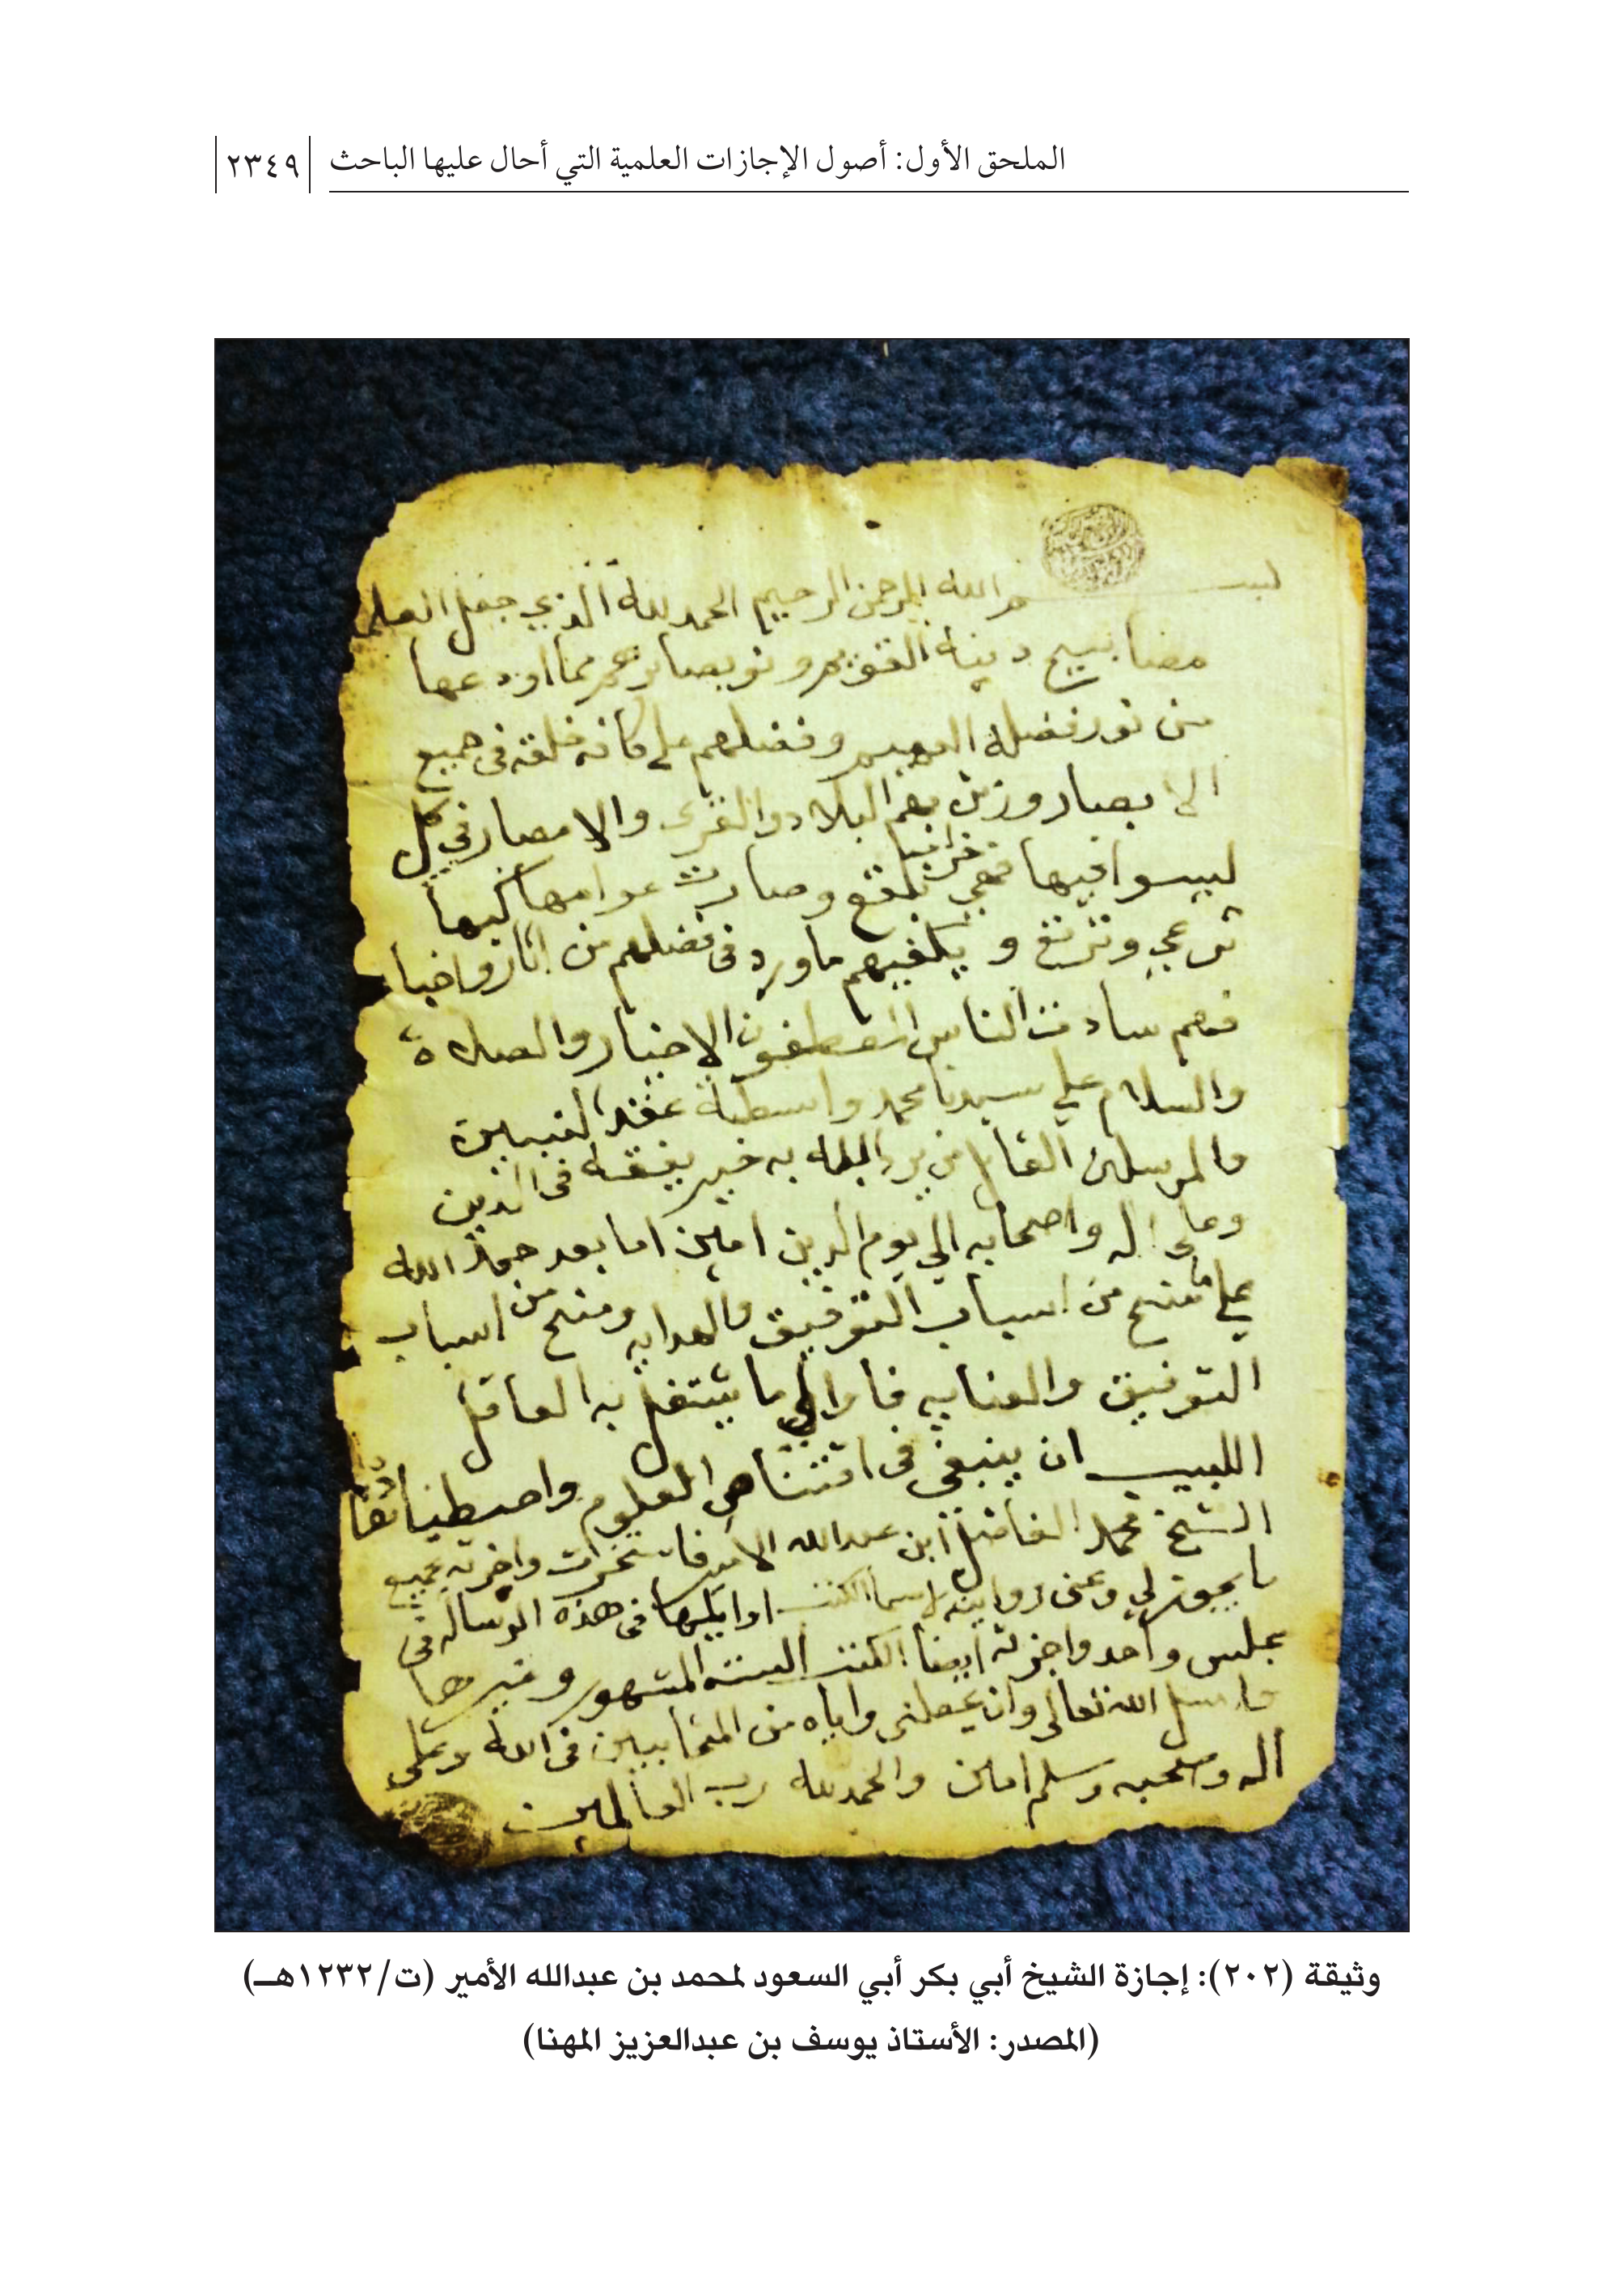 الملحق الأول: أصول الإجازات العلمية التي أحال عليها الباحث
٢٣٤٩
بسم الله الرحمن الرحيم الحمد لله الذي جعل العلما
مصابيح دينه القويم ونو بصايرهم مما اودعها
من نور فضله العميم وفضلهم على كافه خلقه في جميع
الا بصار وزين بهم البلاد والقرى والامصار في كل
ليسوا فيها فهي بلقع وصارت عوامها كبها
ترعى وترتع و يكفيهم ما ورد في فضلهم من اثار واخبا
فهم سادت الناس المصطفون الاخيار والصلاة
والسلام على سيدنا محمد واسطة عقد النبيين
والمرسلين القايل من يرد الله به خير يفقه في الدين
وعلى اله واصحابه الى يوم الدين امين اما بعد حمد الله
على ما منح من اسباب التوفيق والهدايه ومنح من اسباب
التوفيق والعنايه فاوالي ما يشتغل به العاقل
اللبيب ان ينبغي في العلوم
الشيخ محمد الفاضل ابن عبدالله الامير فاستخرت واجزته بجميع
ما يجوز لي وعنى روايته لاسيما الكتب اوايلها في هذه الرساله في
مجلس واحد واجزته ايضا الكتب السته المشهور وغيرها
واسل الله تعالى وان يجعلني واياه من المتحابيين في الله وعلى
اله وصحبه وسلم امين والحمد لله رب العالمين
وثيقة (٢٠٢): إجازة الشيخ أبي بكر أبي السعود لمحمد بن عبدالله الأمير (ت/١٢٣٢هـ)
(المصدر: الأستاذ يوسف بن عبدالعزيز المهنا)